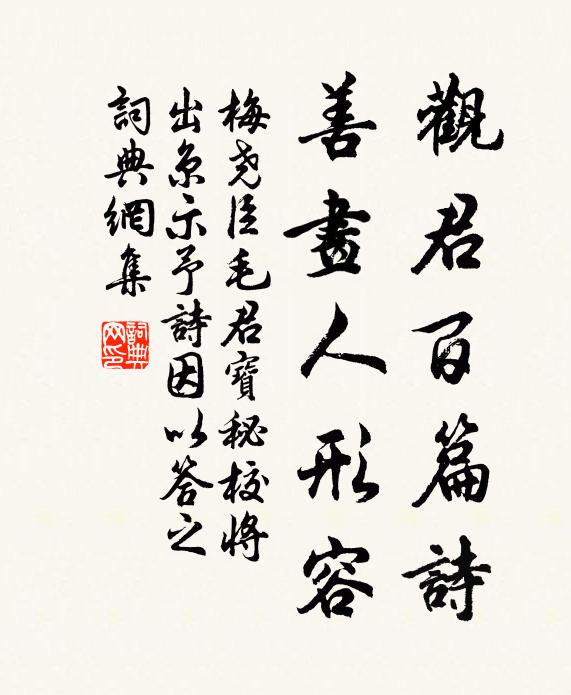 觀君百篇詩
善畫人形容
梅堯臣毛君寶秘校將
出京示予詩因以答之
詞典網集
詞典
网印